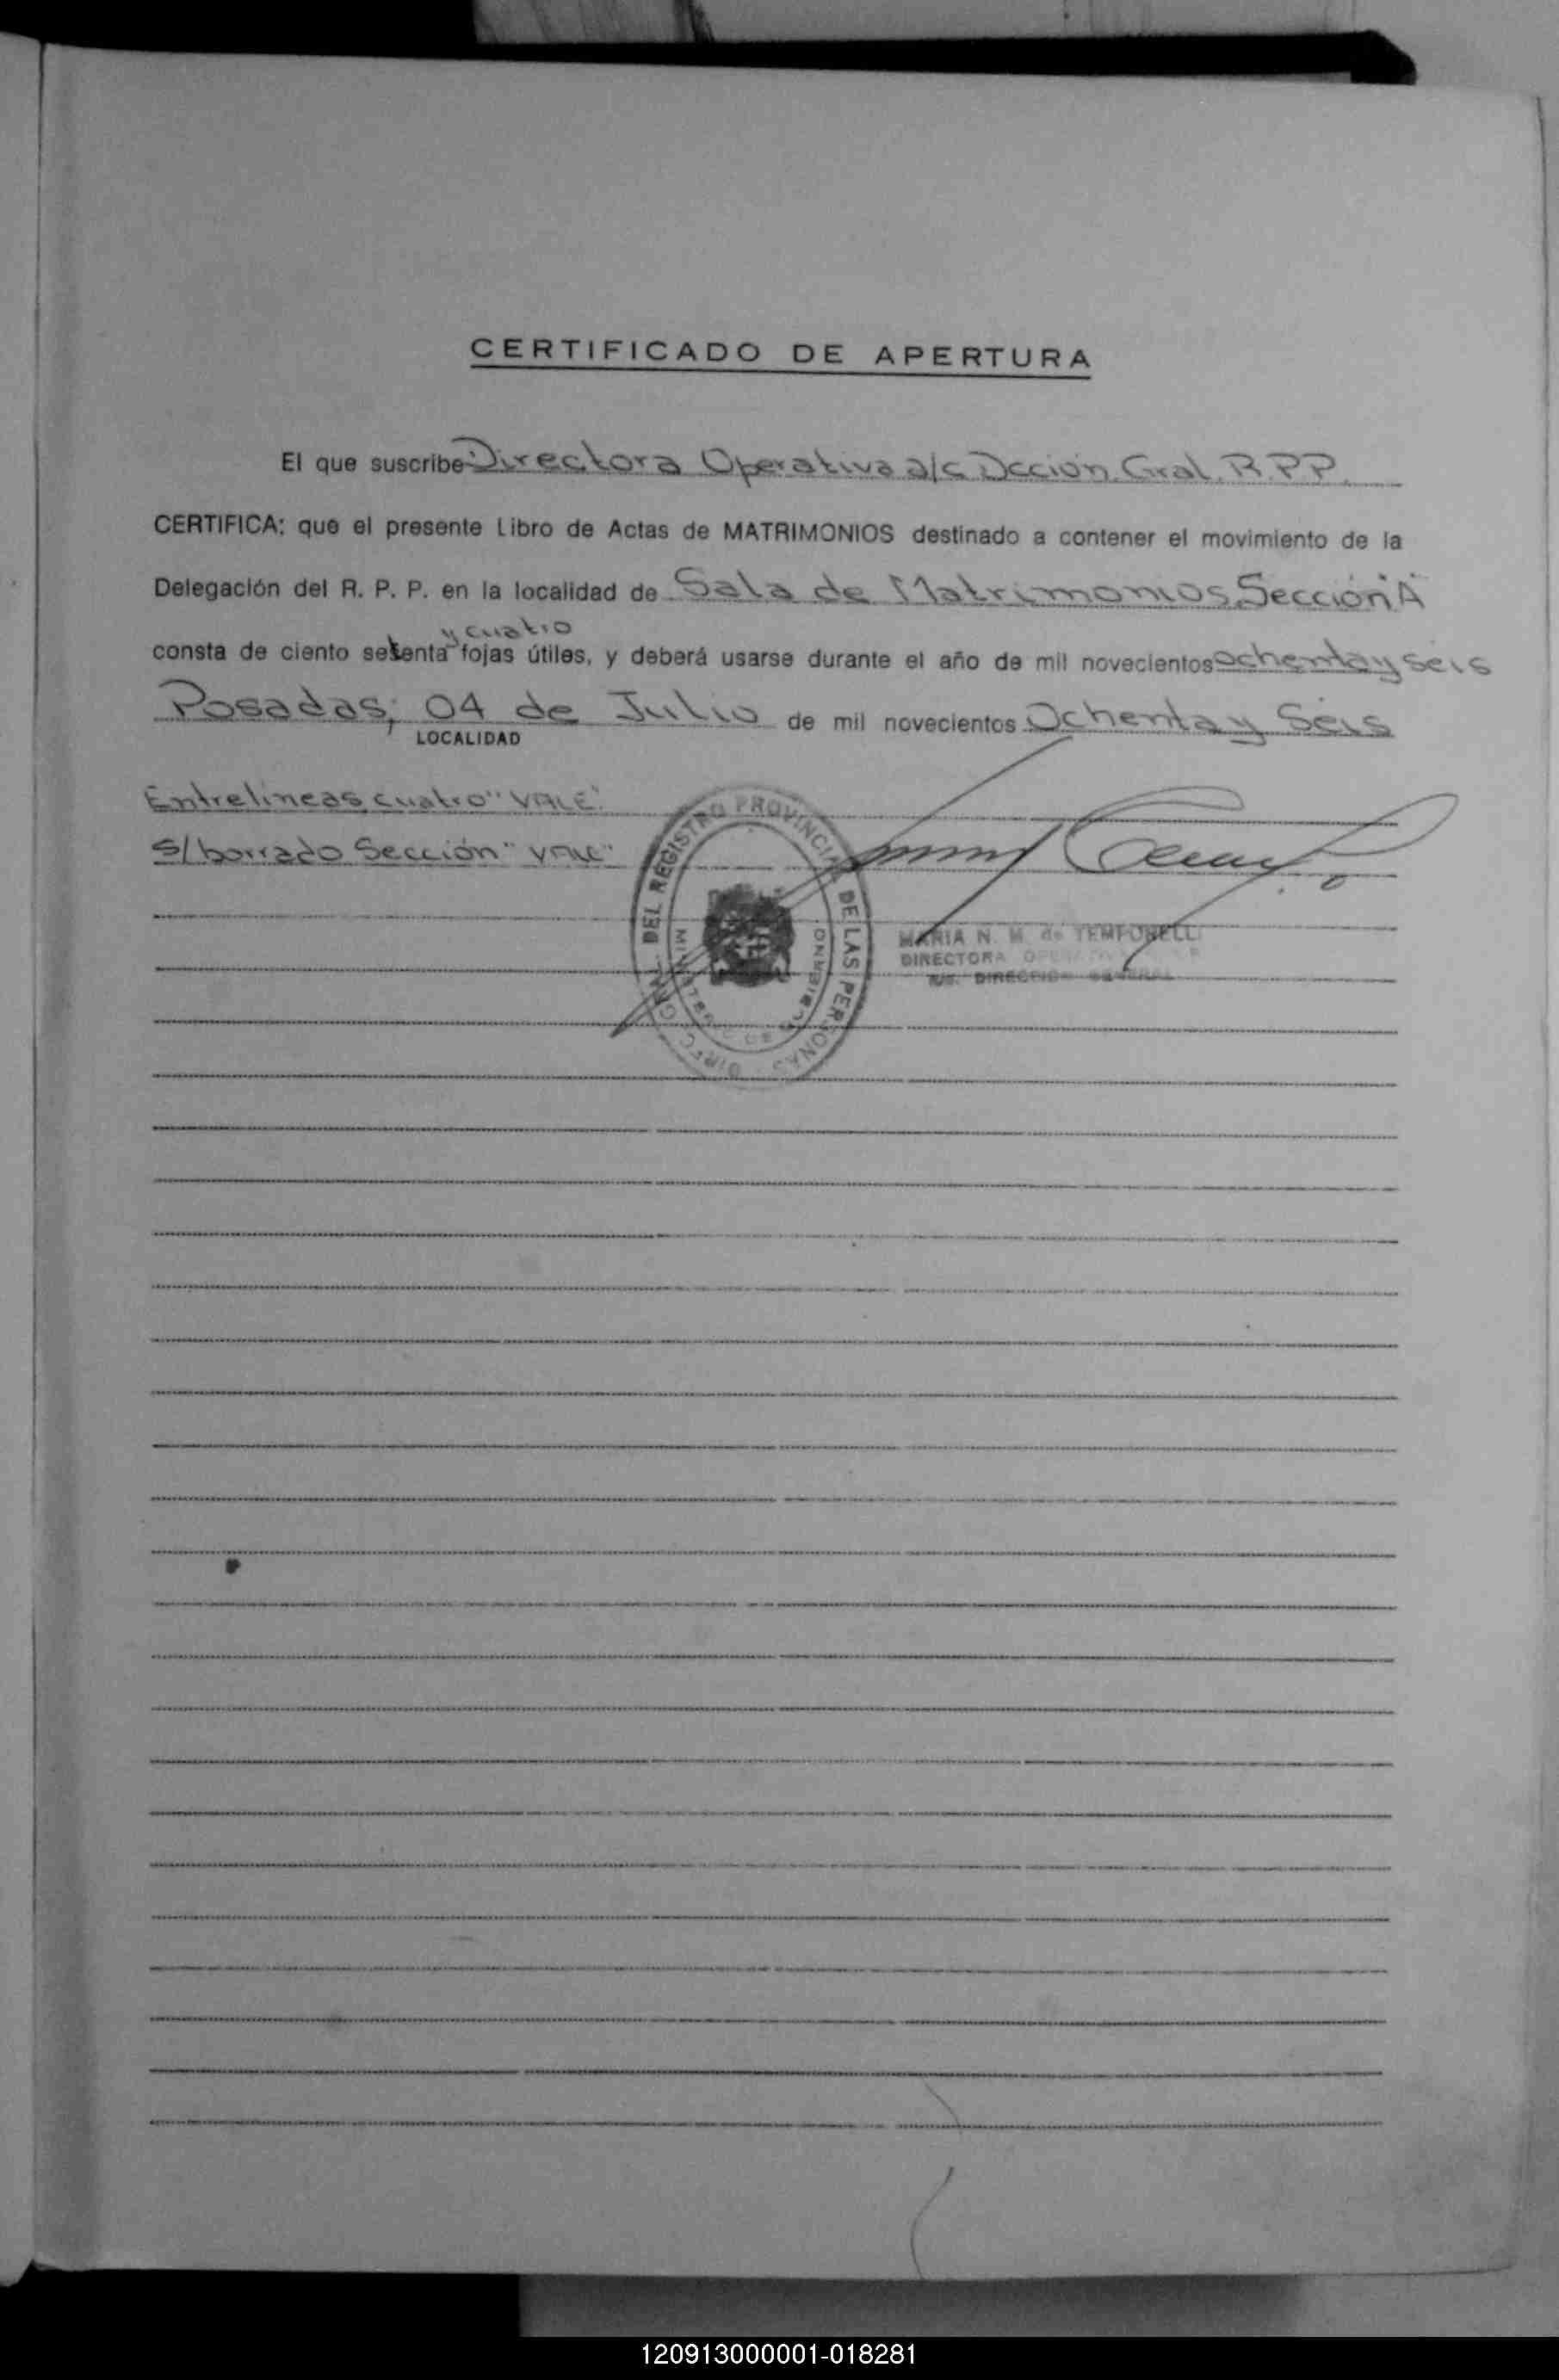 CERTIFICADO DE APERTURA
El que suscribe Directora Operativa a/c Dcción. Gral. R.P.P.
CERTIFICA: que el presente Libro de Actas de MATRIMONIOS destinado a contener el movimiento de la
Delegación del R. P. P. en la localidad de Sala de Matrimonios Sección "A"
y cuatro
consta de ciento setenta fojas útiles, y deberá usarse durante el año de mil novecientos ochenta y seis
Posadas, 04 de Julio de mil novecientos Ochenta y Seis
LOCALIDAD
Entrelineas cuatro "VALE".
S/borrado Sección "VALE"
DIREC. GRAL. DEL REGISTRO PROVINCIAL DE LAS PERSONAS
MINISTERIO DE GOBIERNO
MARIA N. M. de TEMPORELLI
DIRECTORA
A/C. DIRECCION GENERAL
120913000001-018281